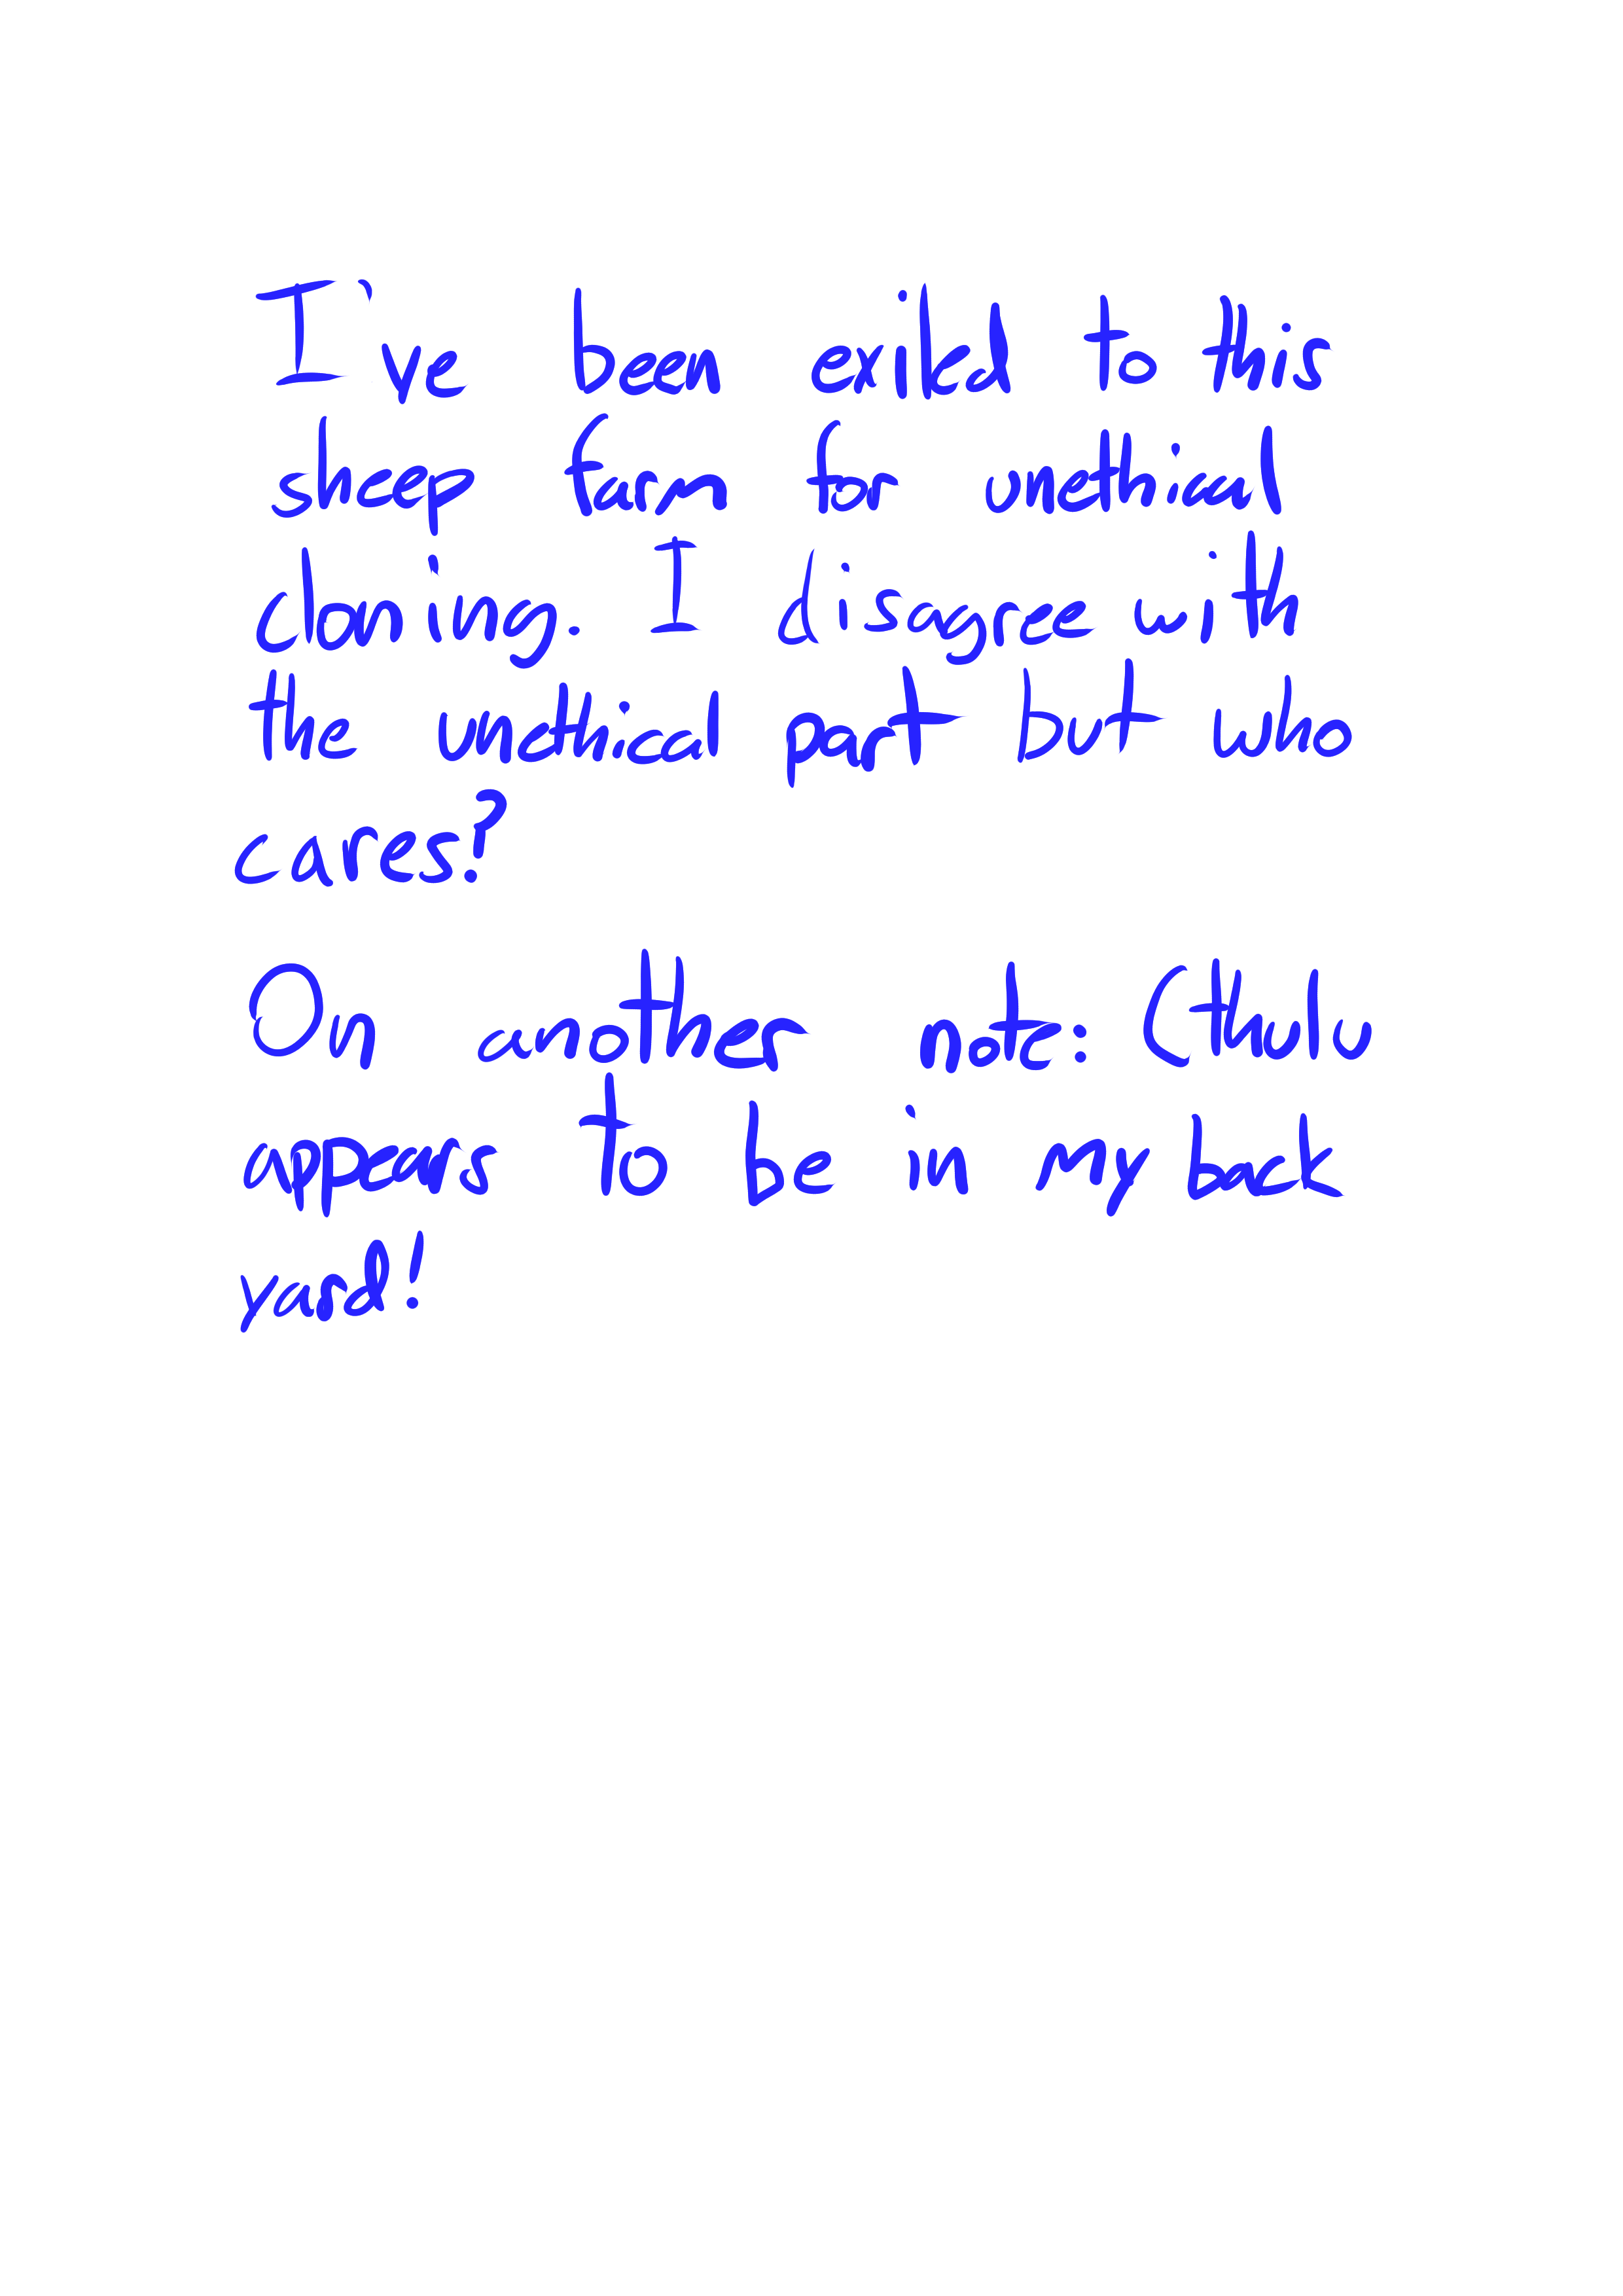 I've been exiled to this
sheep farm for unethical
cloning. I disagree with
the unethical part but who
cares?
On another note: Cthulu
appears to be in my back
yard!